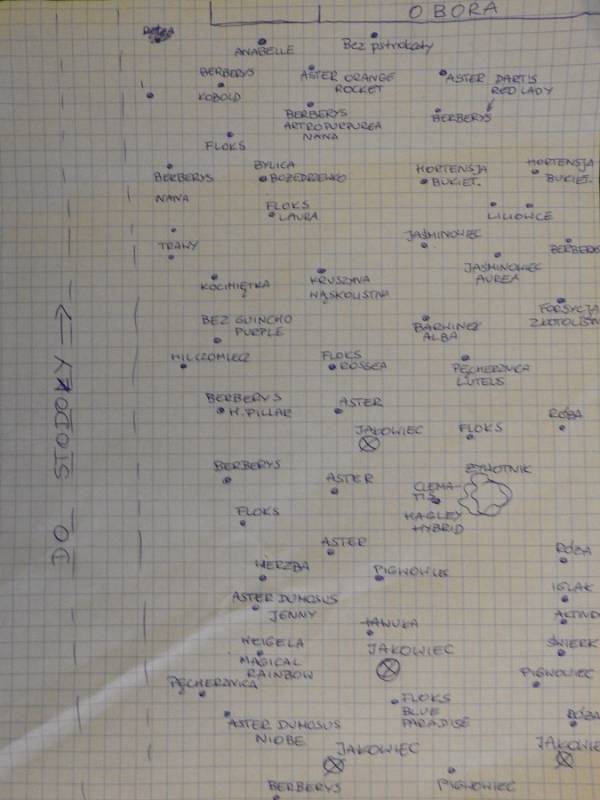 OBORA
ANABELLE
Bez pstrokaty
BERBERYS
KOBOLD
ASTER ORANGE
ROCKET
ASTER DARTIS
RED LADY
BERBERYS
ARTROPURPUREA
NANA
BERBERYS
FLOKS
BERBERYS
NANA
BYLICA
BOŻEDRZEWKO
HORTENSJA
BUKIET.
HORTENSJA
BUKIET.
FLOKS
LAURA
LILIOWCE
TRAWY
JAŚMINOWIEC
BERBERYS
JAŚMINOWIEC
AUREA
KOCIMIĘTKA
KRUSZYNA
WĄSKOLISTNA
BEZ GUINCHO
PURPLE
BARWINEK
ALBA
FORSYCJA
WILCZOMLECZ
FLOKS
ROSSEA
PĘCHERZNICA
LUTEUS
BERBERYS
H. PILLAR
ASTER
RÓŻA
JAŁOWIEC
FLOKS
BERBERYS
ASTER
CLEMA-
TIS
HAGLEY
HYBRID
ŻYWOTNIK
FLOKS
ASTER
RÓŻA
WIERZBA
PIGWOWIEC
IGLAK
ASTER DUMOSUS
JENNY
TAWUŁA
WEIGELA
MAGICAL
RAINBOW
JAŁOWIEC
ŚWIERK
PĘCHERZNICA
PIGWOWIEC
FLOKS
BLUE
PARADISE
ASTER DUMOSUS
NIOBE
RÓŻA
JAŁOWIEC
JAŁOWIE
BERBERYS
PIGWOWIEC
DO STODOŁY →